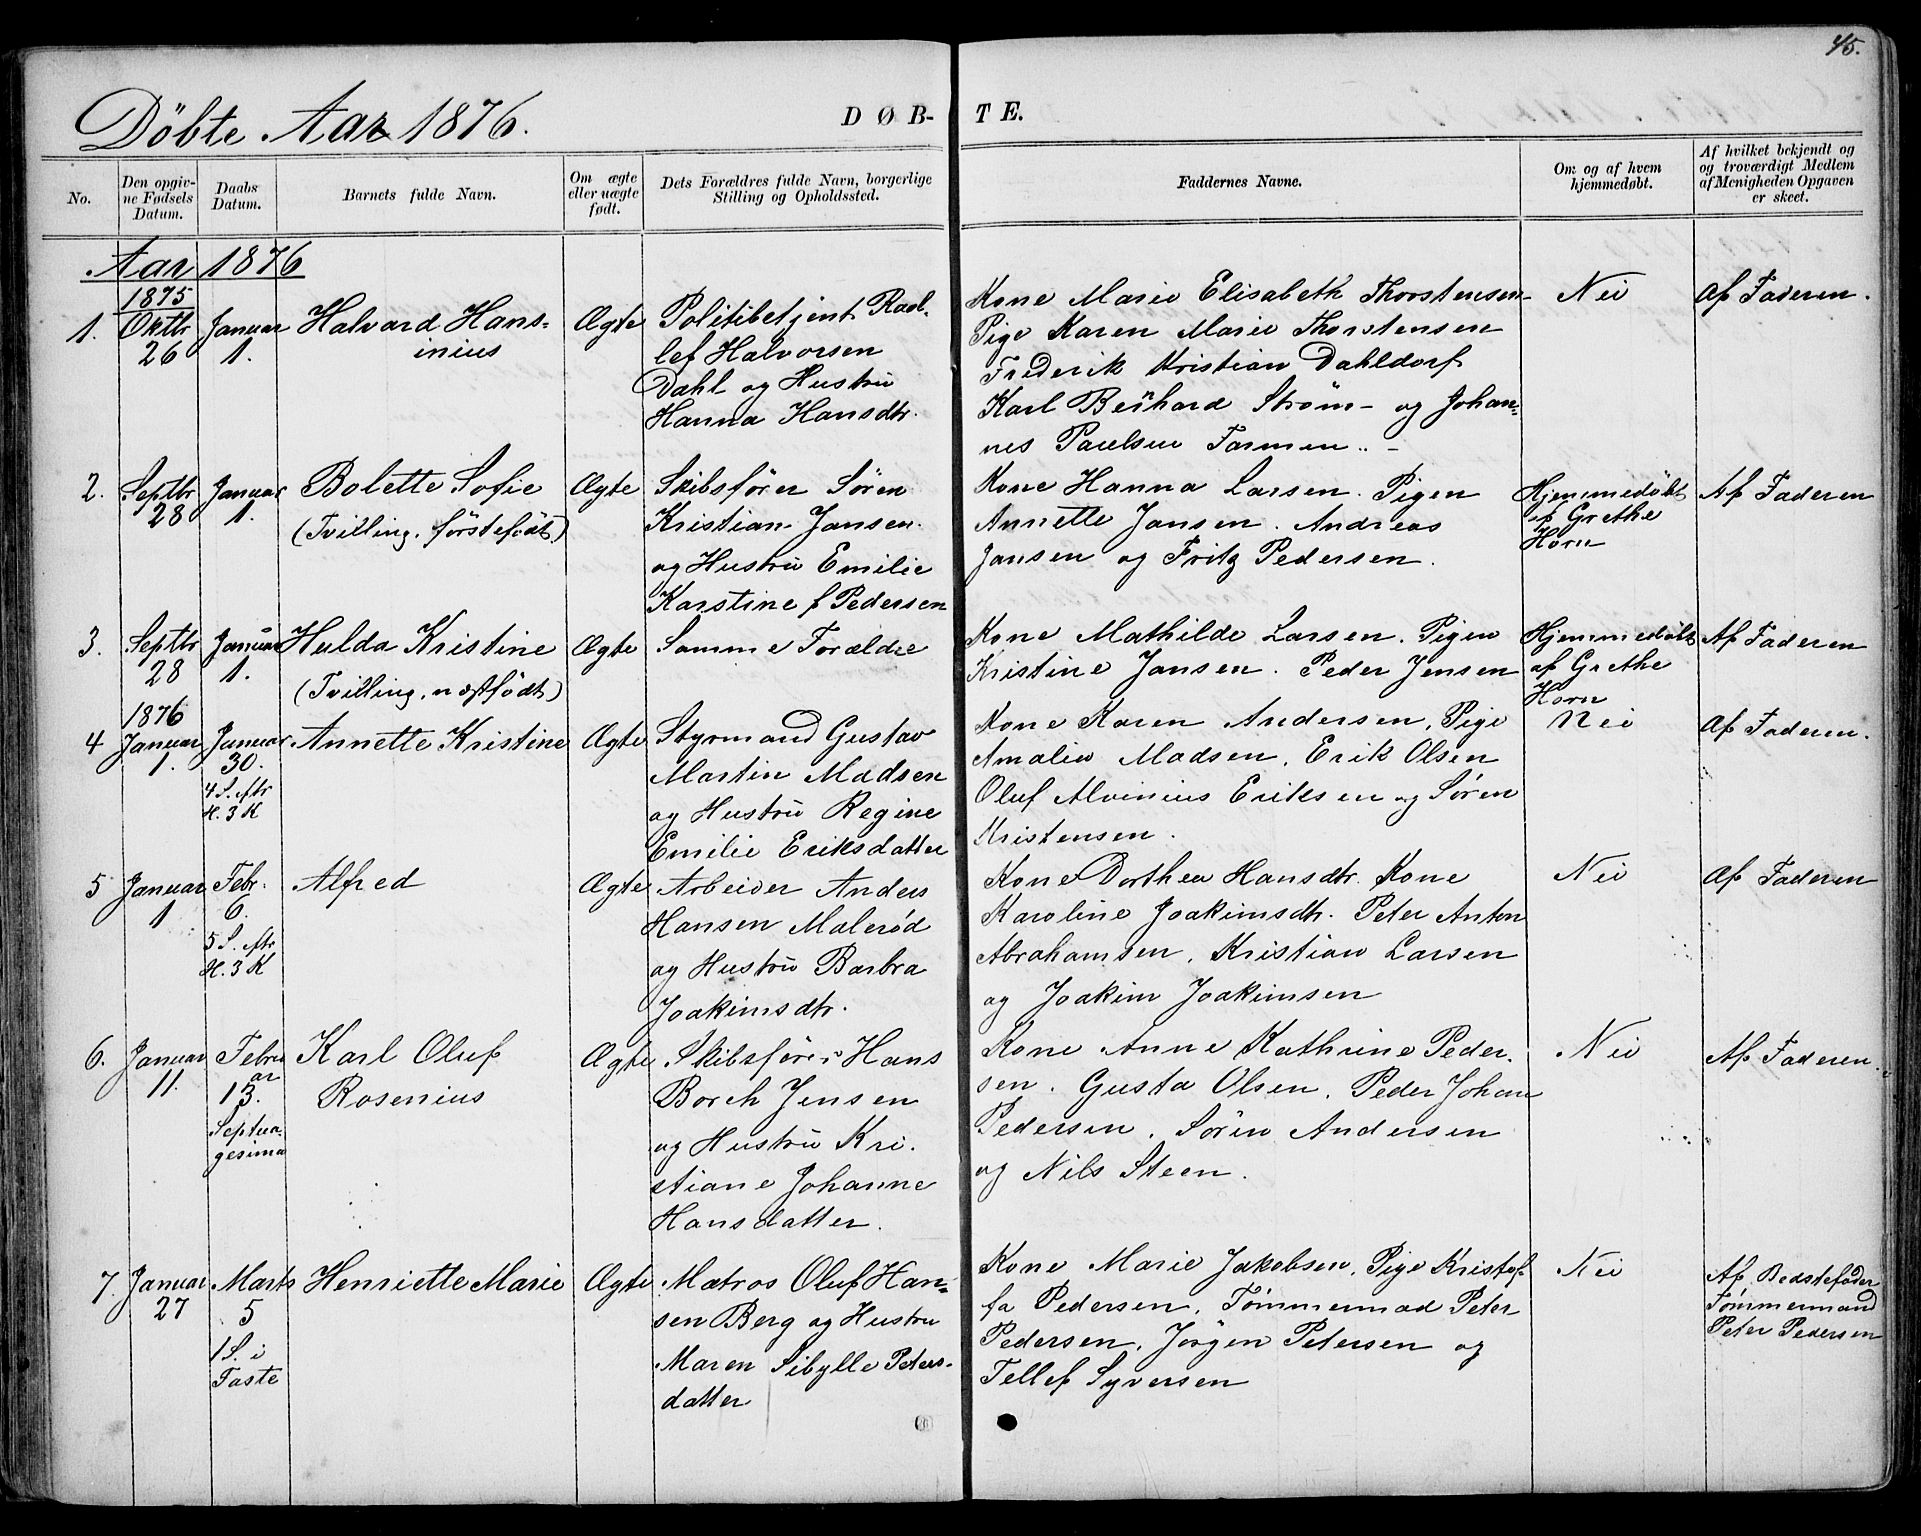 45.
Döbte Aar 1876.
DØB-
TE.
No.
Den opgiv-
ne Fødsels
Datum.
Daabs
Datum.
Barnets fulde Navn.
Om ægte
eller uægte
født.
Dets Forældres fulde Navn, borgerlige
Stilling og Opholdssted.
Faddernes Navne.
Om og af hvem
hjemmedøbt.
Af hvilket bekjendt og
og troværdigt Medlem
af Menigheden Opgaven
er skeet.
Aar 1876
1.
1875
Oktbr
26
Januar
1.
Halvard Hans-
inius
Ægte
Politibetjent Raol-
lef Halvorsen
Dahl og Hustru
Hanna Hansdtr.
Kone Marie Elisabeth Thorstensen
Pige Karen Marie Thorstensen
Frederik Kristian Dahldorf
Karl Bernhard Strøm - og Johan-
nes Paulsen Formen.. -
Nei
Af Faderen.
2.
Septbr
28
Januar
1.
Bolette Sofie
(Tvilling, förstefödt.)
Ægte
Skibsfører Søren
Kristian Jansen.
og Hustru Emilie
Karstine f Pedersen
Kone Hanna Larsen. Pigen
Annette Jansen. Andreas
Jansen og Fritz Pedersen.
Hjemmedöbt
af Grethe
Horn
Af Faderen
3.
Septbr
28
Januar
1.
Hulda Kristine
(Tvilling, næstfödt)
Ægte
Samme Forældre
Kone Mathilde Larsen. Pigen
Kristine Jansen. Peder Jensen
Hjemmedöbt
af Grethe
Horn
Af Faderen
4
1876
Januar
1.
Januar
30.
4 S. eftr
H. 3 K
Annette Kristine
Ægte
Styrmand Gustav
Martin Madsen
og Hustru Regine
Emilie Eriksdatter
Kone Karen Andersen, Pige
Amalie Madsen, Erik Olsen
Oluf Alvinius Eriksen og Søren
Kristensen.
Nei
Af Faderen.
5
Januar
1
Febr.
6.
5 S. eftr
H. 3 K
Alfred
Ægte
Arbeider Anders
Hansen Malerød
og Hustru Barbra
Joakimsdtr.
Kone Dorthea Hansdtr. Kone
Karoline Joakimsdtr. Peter Anton
Abrahamsen, Kristian Larsen
og Joakim Joakimsen
Nei
Af Faderen
6.
Januar
11.
Febru
ar
13.
Septua-
gesima
Karl Oluf
Rosenius
Ægte
Skibsfører Hans
Borch Jensen
og Hustru Kri-
stiane Johanne
Hansdatter.
Kone Anne Kathrine Peder-
sen. Gusta Olsen, Peder Johan
Pedersen, Søren Andersen
og Nils Steen.
Nei
Af Faderen.
7.
Januar
27
Marts
5
1 S. i
Faste
Henriette Marie
Ægte
Matros Oluf Han-
sen Berg og Hustru
Maren Sibylle Peters-
datter
Kone Marie Jakobsen, Pige Kristof-
fa Pedersen, Tømmermad Peter
Pedersen, Jörgen Petersen og
Tellef Syversen
Nei
Af Bedstefader
Tømmermand
Peter Pedersen